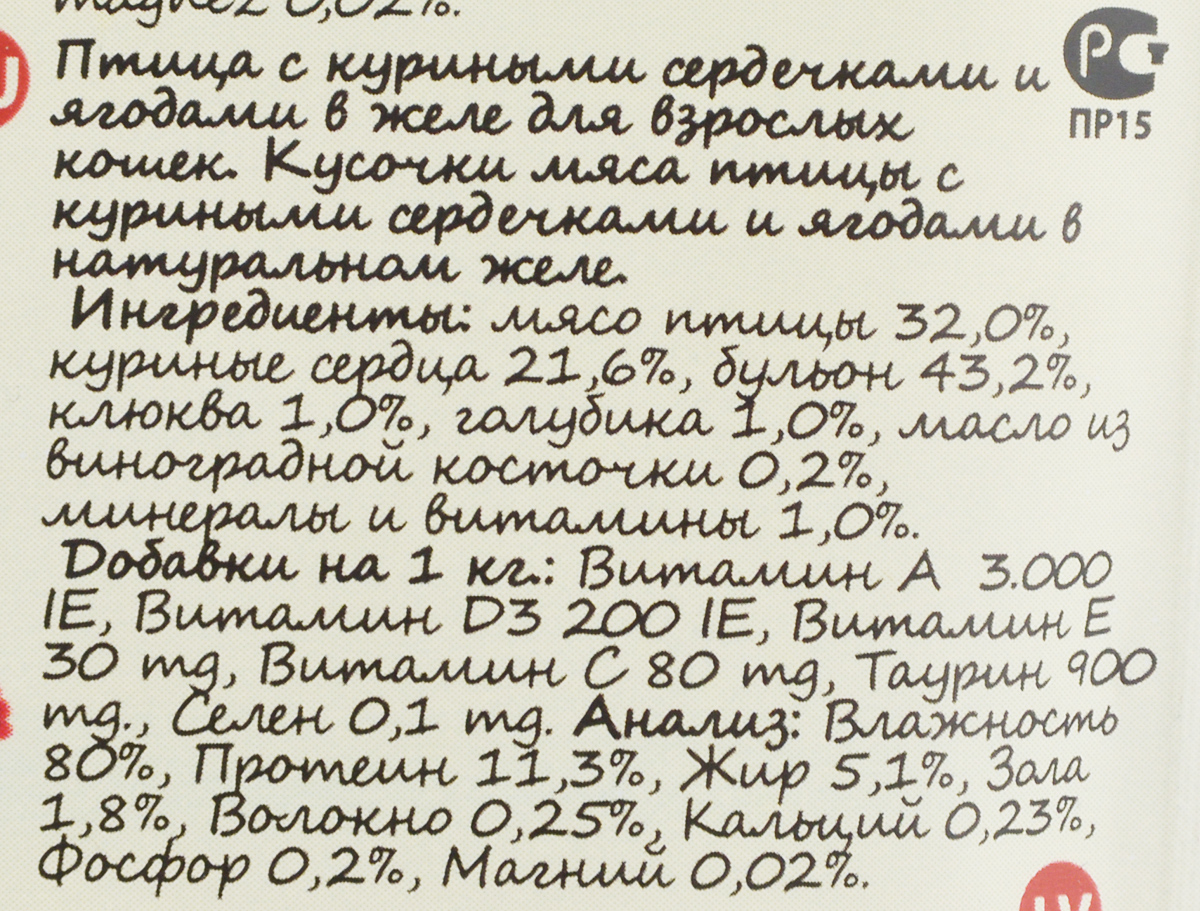 magnez 0,02%.
Птица с куриными сердечками и
ягодами в желе для взрослых
кошек. Кусочки мяса птицы с
куриными сердечками и ягодами в
натуральном желе.
Ингредиенты: мясо птицы 32,0%,
куриные сердца 21,6%, бульон 43,2%,
клюква 1,0%, голубика 1,0%, масло из
виноградной косточки 0,2%,
минералы и витамины 1,0%.
Добавки на 1 кг.: Витамин А 3.000
IE, Витамин D3 200 IE, Витамин Е
30 mg, Витамин С 80 mg, Таурин 900
mg., Селен 0,1 mg. Анализ: Влажность
80%, Протеин 11,3%, Жир 5,1%, Зола
1,8%, Волокно 0,25%, Кальций 0,23%,
Фосфор 0,2%, Магний 0,02%.
РСТ
ПР15
LV